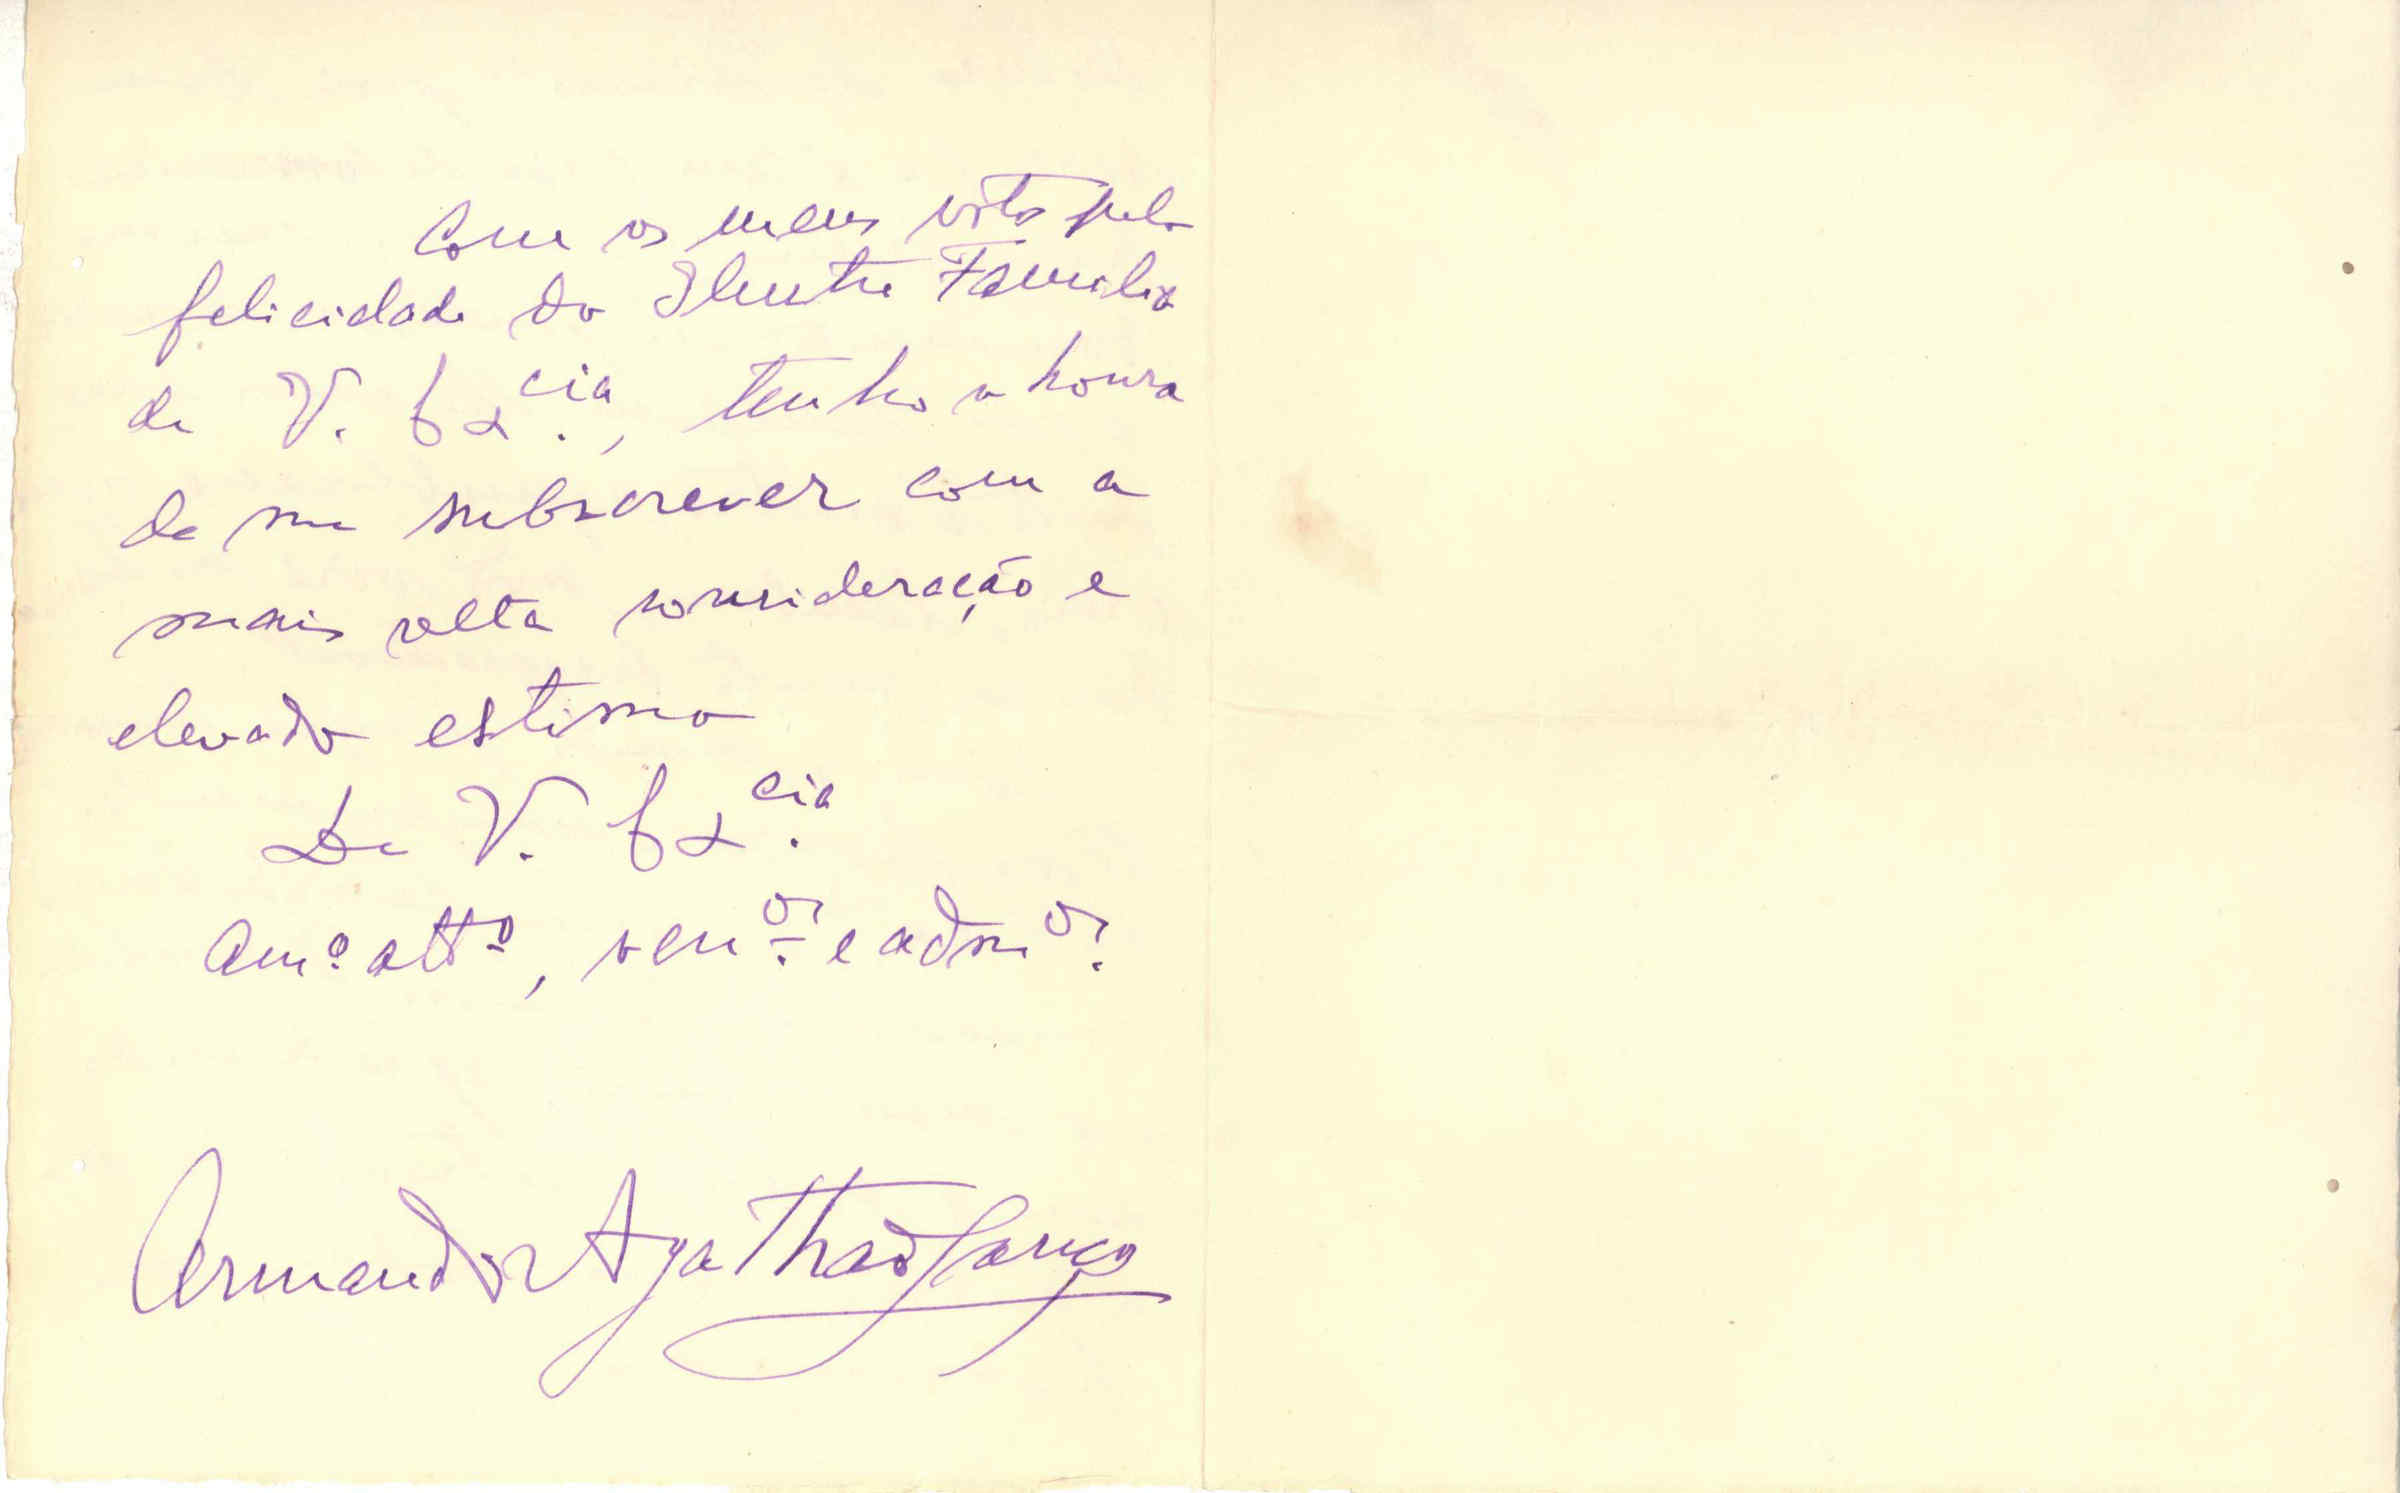 Com os meus votos pela
felicidade da Ilustre Familia
de V. Ex.cia, tenho a honra
de me subscrever com a
mais alta consideração e
elevada estima
De V. Ex.cia
Am.º att.º, ven.or e adm.or
Armando Agathão Lança